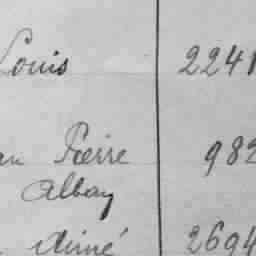 Louis 2241
an Pierre 982
Albay
Aimé 2694